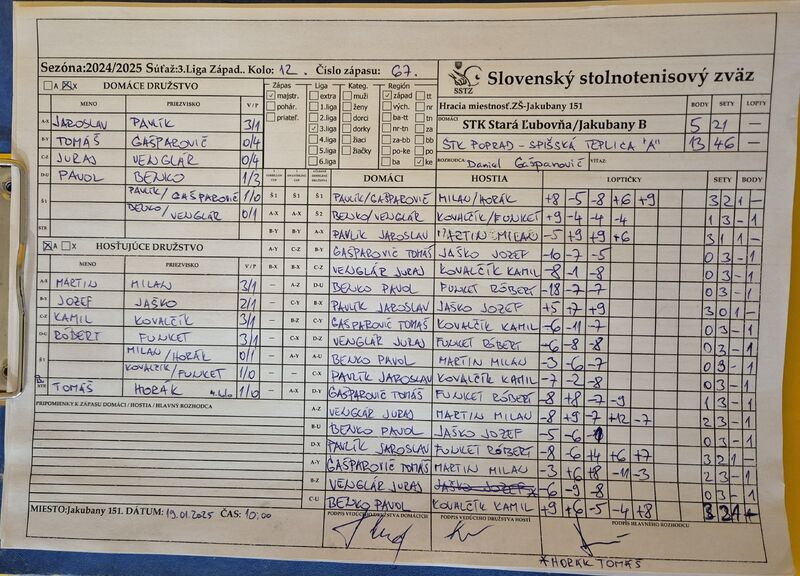 Sezóna:2024/2025 Súťaž:3.Liga Západ.. Kolo: 12. Číslo zápasu: 67.
SSTZ
Slovenský stolnotenisový zväz
A X DOMÁCE DRUŽSTVO
MENO PRIEZVISKO V/P
A-X JAROSLAV PAVLÍK 3/1
B-Y TOMÁŠ GAŠPAROVIČ 0/4
C-Z JURAJ VENGLÁR 0/4
D-U PAVOL BENKO 1/3
Š1 PAVLÍK/GAŠPAROVIČ 1/0
BENKO/VENGLÁR 0/1
STR
A X HOSŤUJÚCE DRUŽSTVO
MENO PRIEZVISKO V/P
A-X MARTIN MILAN 3/1
B-Y JOZEF JAŠKO 2/1
C-Z KAMIL KOVALČÍK 3/1
D-U RÓBERT FUNKET 3/1
Š1 MILAN/HORÁK 0/1
KOVALČÍK/FUNKET 1/0
STR TOMÁŠ HORÁK 1/0
PRIPOMIENKY K ZÁPASU DOMÁCI / HOSTIA / HLAVNÝ ROZHODCA
MIESTO:Jakubany 151. DÁTUM: 19.01.2025 ČAS: 10:00
Zápas Liga Kateg. Región
majstr. extra muži západ tt
pohár. 1.liga ženy vých. nr
priateľ. 2.liga dorci ba-tt tn
3.liga dorky nr-tn za
4.liga žiaci za-bb bb
5.liga žiačky ba po
6.liga po-ke ke
Hracia miestnosť.ZŠ-Jakubany 151 BODY SETY LOPTY
DOMÁCI STK Stará Ľubovňa/Jakubany B 5 21 —
STK POPRAD - SPIŠSKÁ TEPLICA "A" 13 46 —
ROZHODCA: Daniel Gašparovič VÍŤAZ:
DOMÁCI HOSTIA LOPTIČKY SETY BODY
Š1 Š1 PAVLÍK/GAŠPAROVIČ MILAN/HORÁK +8 -5 -8 +6 +9 3 2 1 —
A-X A-X Š2 BENKO/VENGLÁR KOVALČÍK/FUNKET +9 -4 -4 -4 1 3 - 1
B-Y B-Y A-X PAVLÍK JAROSLAV MARTIN MILAN -5 +9 +9 +6 3 1 1 —
A-Y C-Z B-Y GAŠPAROVIČ TOMÁŠ JAŠKO JOZEF -10 -7 -5 0 3 - 1
B-X B-X C-Z VENGLÁR JURAJ KOVALČÍK KAMIL -8 -1 -8 0 3 - 1
— A-Z D-U BENKO PAVOL FUNKET RÓBERT -18 -7 -7 0 3 - 1
— C-Y B-X PAVLÍK JAROSLAV JAŠKO JOZEF +5 +7 +9 3 0 1 —
— B-Z C-Y GAŠPAROVIČ TOMÁŠ KOVALČÍK KAMIL -6 -11 -7 0 3 - 1
— C-X D-Z VENGLÁR JURAJ FUNKET RÓBERT -6 -8 -8 0 3 - 1
— A-Y A-U BENKO PAVOL MARTIN MILAN -3 -6 -7 0 3 - 1
— B-X C-X PAVLÍK JAROSLAV KOVALČÍK KAMIL -7 -2 -8 0 3 - 1
— A-X D-Y GAŠPAROVIČ TOMÁŠ FUNKET RÓBERT -8 +8 -7 -9 1 3 - 1
A-Z VENGLÁR JURAJ MARTIN MILAN -8 +9 -7 +12 -7 2 3 - 1
B-U BENKO PAVOL JAŠKO JOZEF -5 -6 0 3 - 1
D-X PAVLÍK JAROSLAV FUNKET RÓBERT -8 -6 +4 +6 +7 3 2 1 —
A-Y GAŠPAROVIČ TOMÁŠ MARTIN MILAN -3 +6 +8 -11 -3 2 3 - 1
B-Z VENGLÁR JURAJ JAŠKO JOZEF x -6 -9 -8 0 3 - 1
C-U BENKO PAVOL KOVALČÍK KAMIL +9 +6 -5 -4 +8 3 2 1 —
PODPIS VEDÚCEHO DRUŽSTVA DOMÁCICH PODPIS VEDÚCEHO DRUŽSTVA HOSTÍ PODPIS HLAVNÉHO ROZHODCU
*HORÁK TOMÁŠ